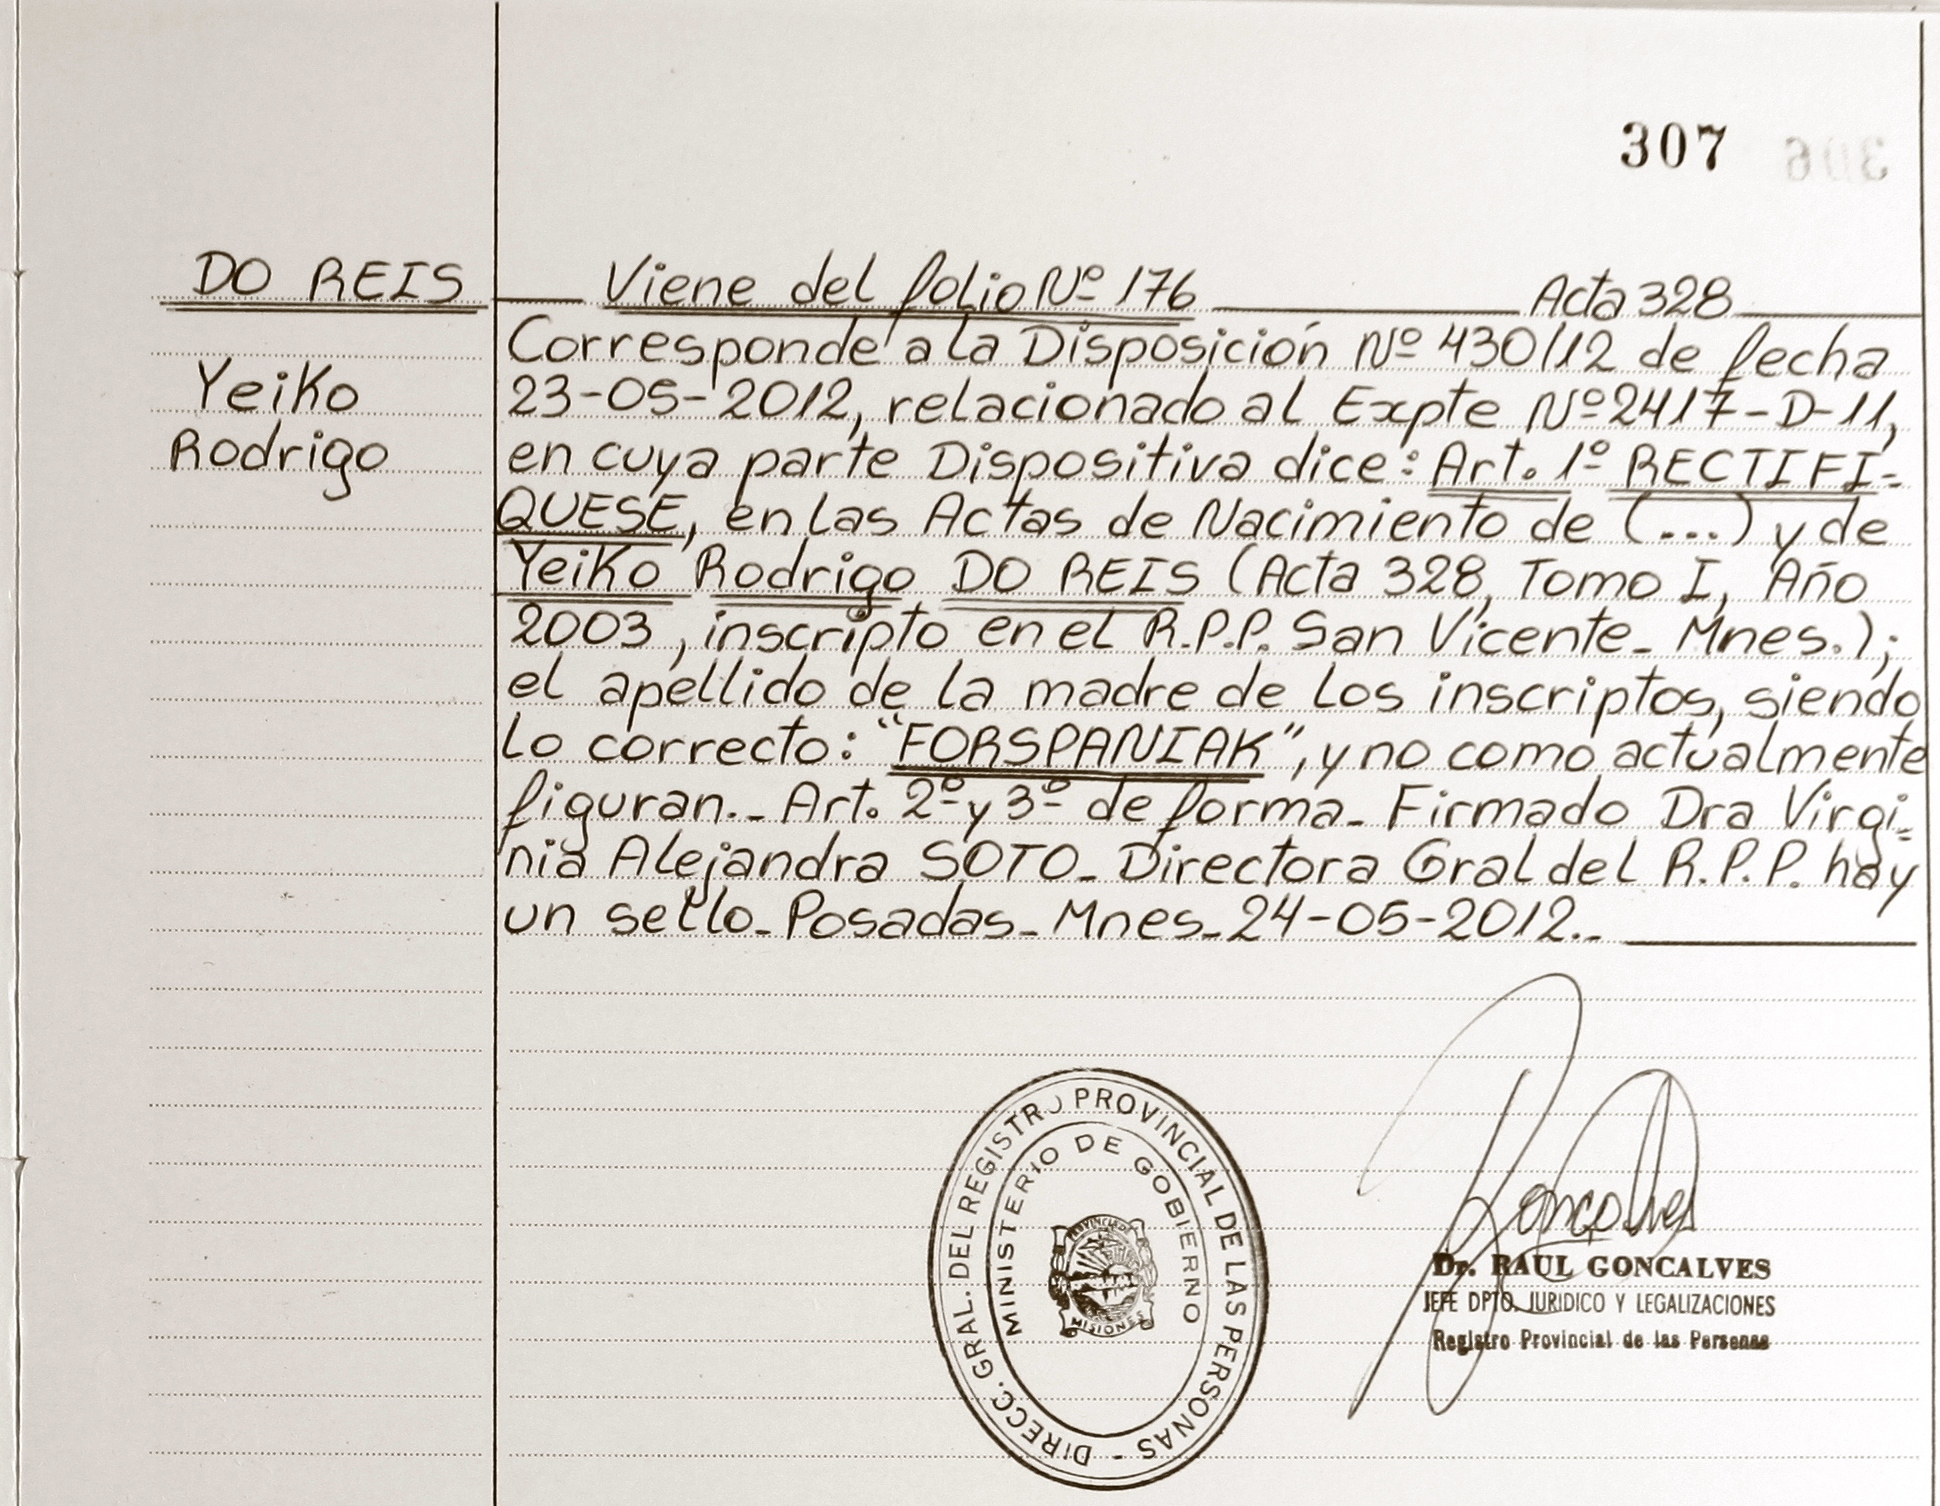 307
306
DO REIS
Yeiko
Rodrigo
Viene del folio Nº 176 Acta 328
Corresponde a la Disposición Nº 430/12 de fecha
23-05-2012, relacionado al Expte Nº 2417-D-11,
en cuya parte Dispositiva dice: Art. 1º RECTIFI-
QUESE, en las Actas de Nacimiento de (...) y de
Yeiko Rodrigo DO REIS (Acta 328, Tomo I, Año
2003, inscripto en el R.P.P. San Vicente_ Mnes.);
el apellido de la madre de los inscriptos, siendo
lo correcto: "FORSPANIAK", y no como actualmente
figuran._ Art. 2º y 3º de forma_ Firmado Dra Virgi-
nia Alejandra SOTO_ Directora Gral del R.P.P. hay
un sello_ Posadas_ Mnes_ 24-05-2012._
DIRECC. GRAL. DEL REGISTRO PROVINCIAL DE LAS PERSONAS -
MINISTERIO DE GOBIERNO
PROVINCIA DE
MISIONES
Goncalves
Dr. RAUL GONCALVES
JEFE DPTO. JURIDICO Y LEGALIZACIONES
Registro Provincial de las Personas